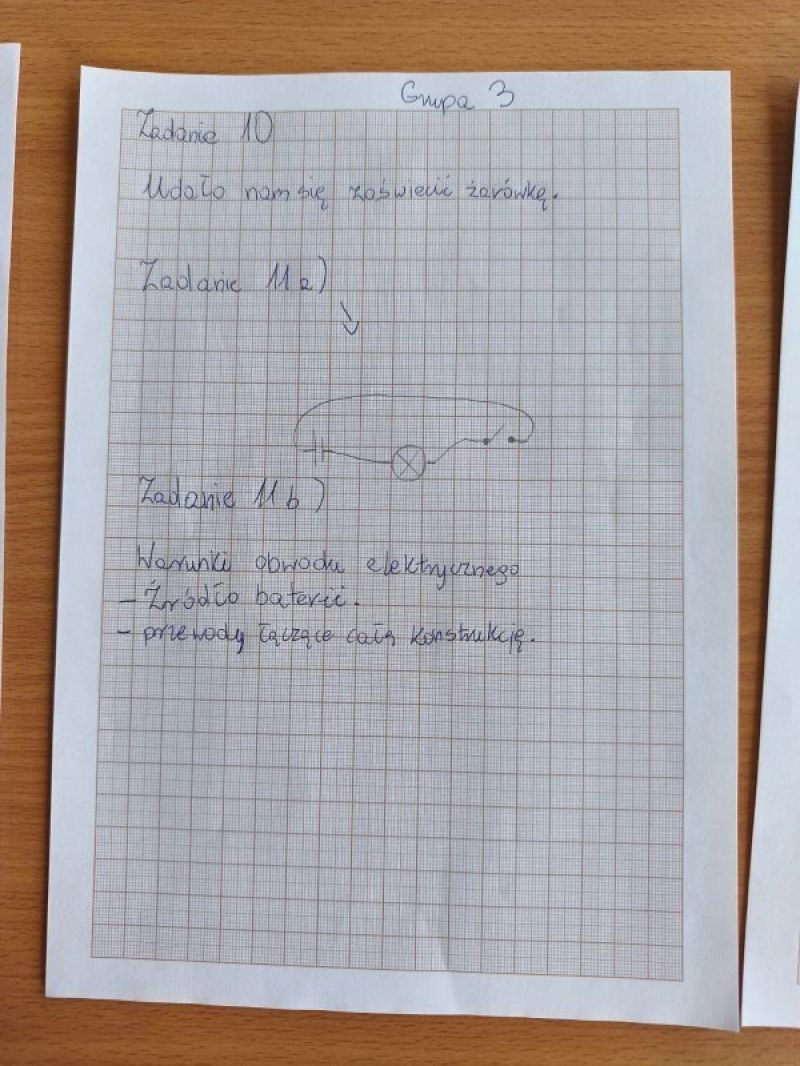 Grupa 3
Zadanie 10
Udało nam się zaświecić żarówkę.
Zadanie 11a)
Zadanie 11b)
Warunki obwodu elektrycznego
- Źródło baterii.
- przewody łączące całą konstrukcję.